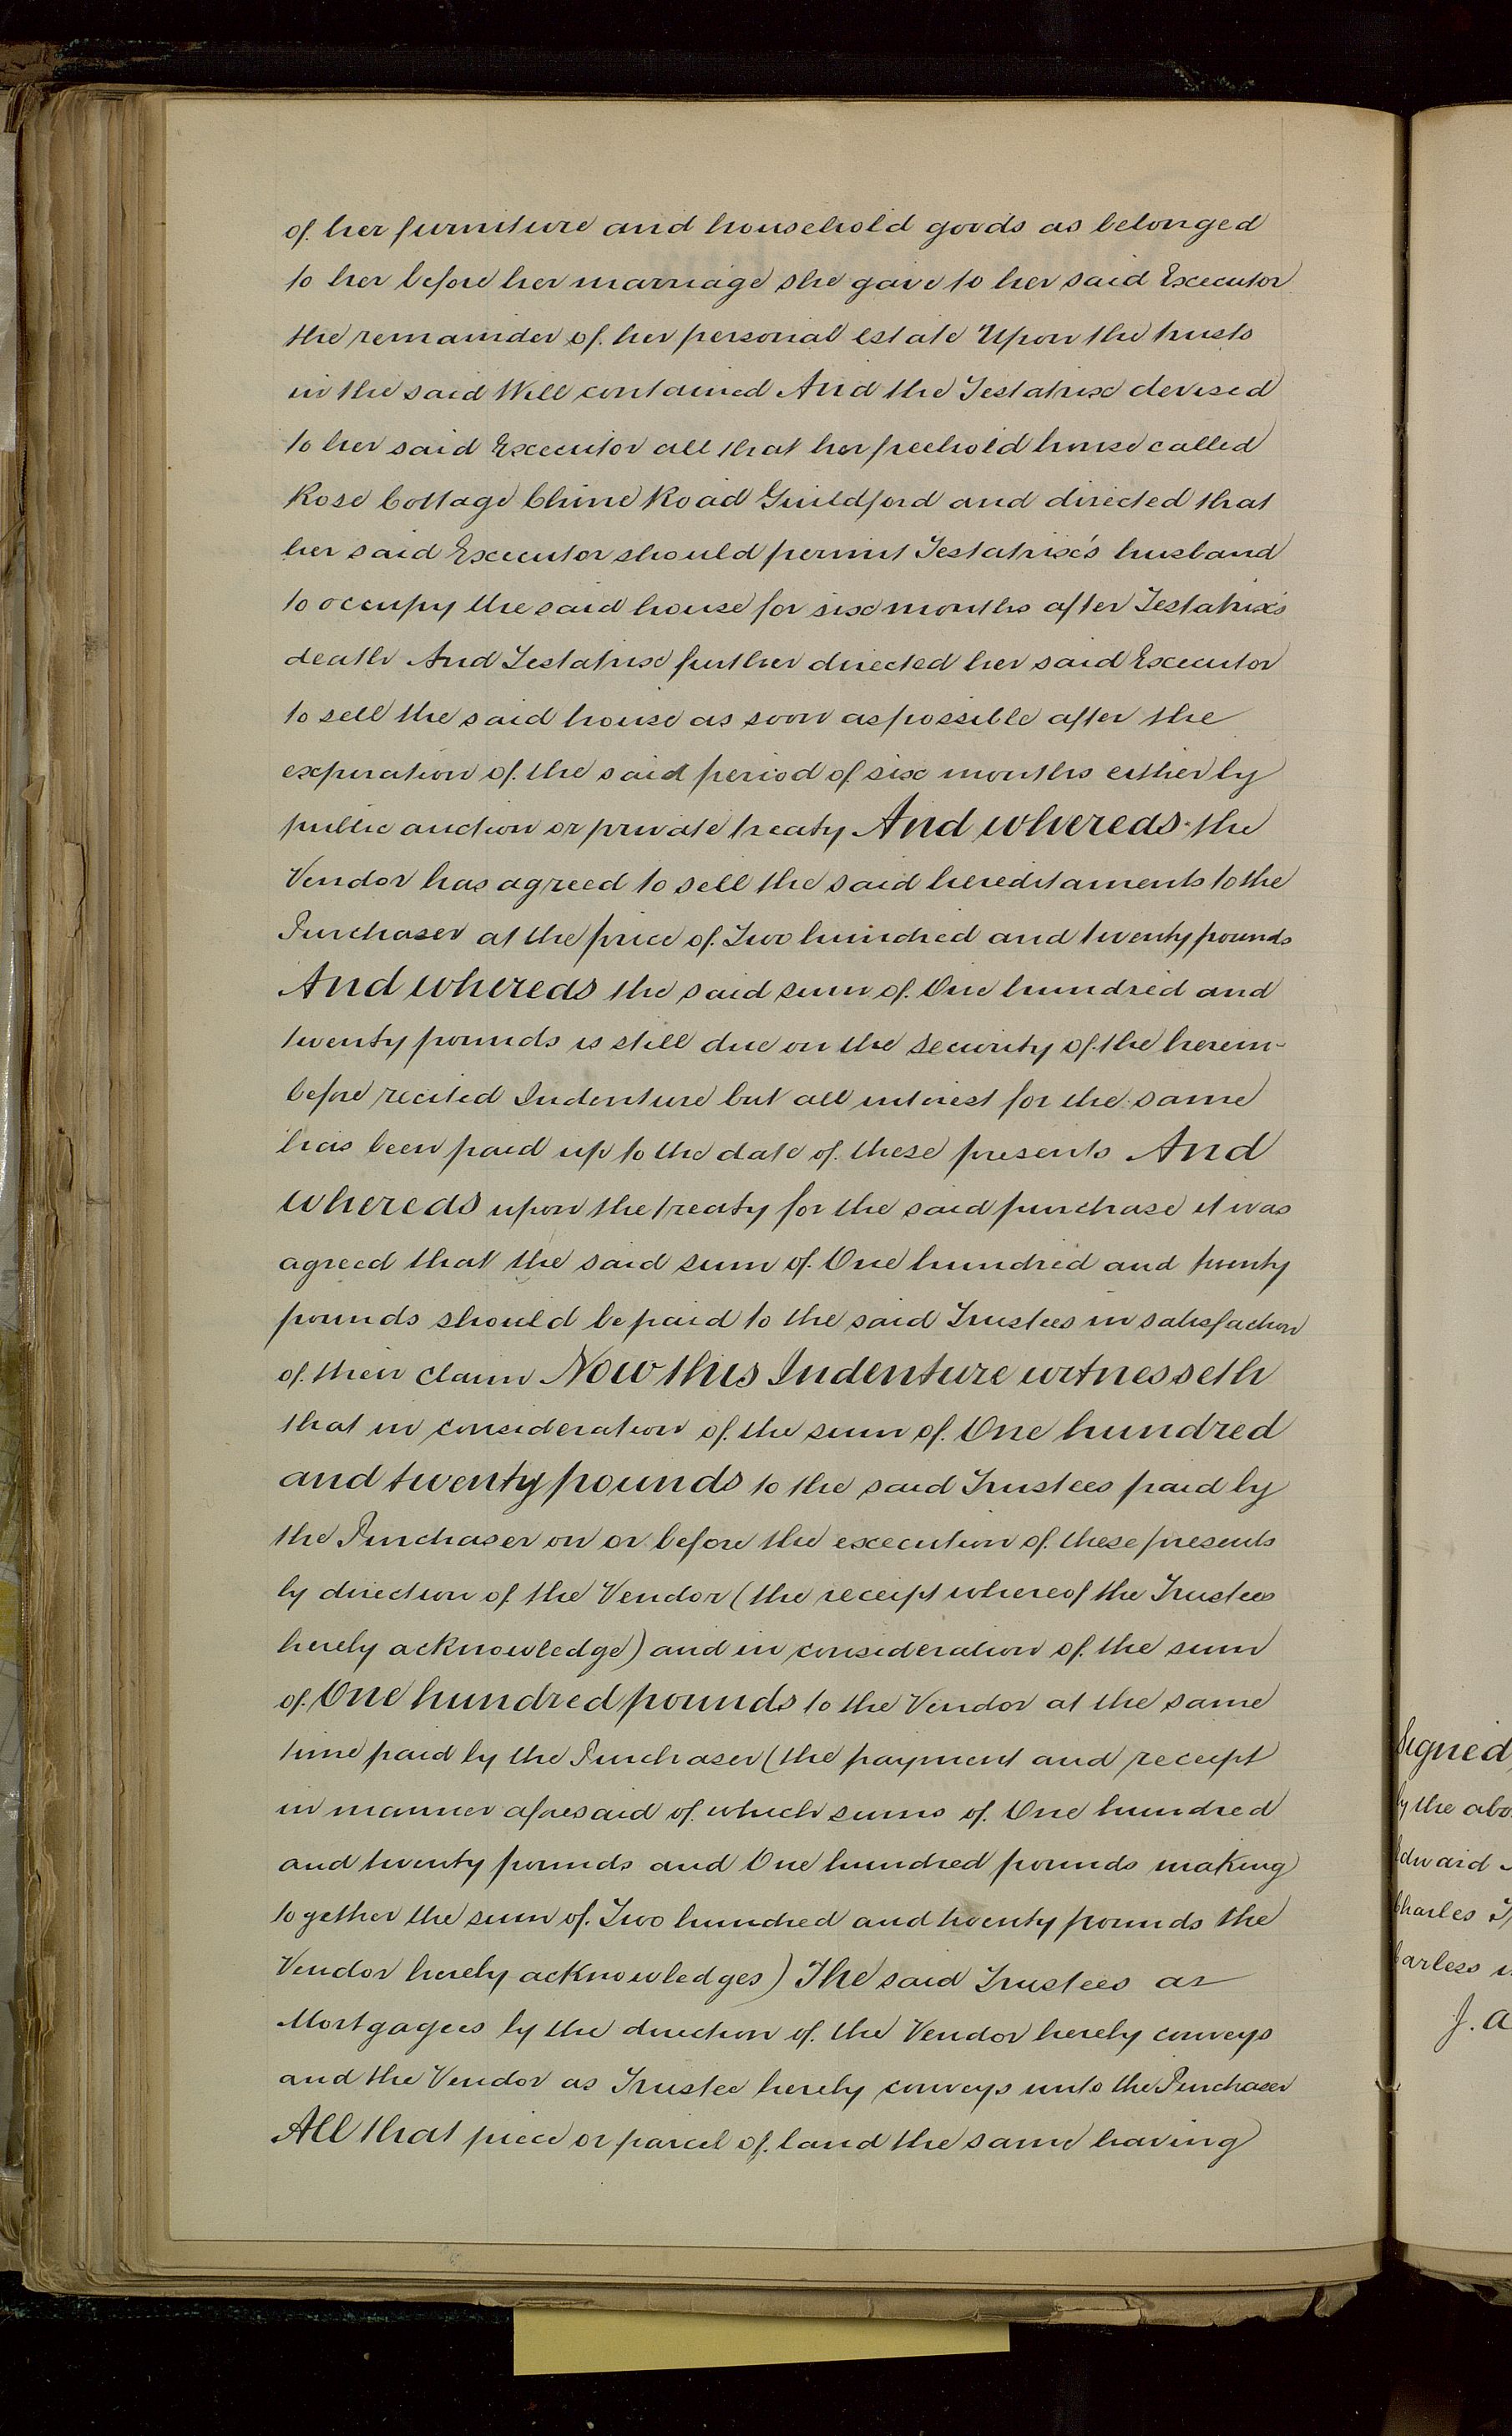 of her furniture and household goods as belonged
to her before her marriage she gave to her said Executor
the remainder of her personal estate Upon the trusts
in the said Will contained And the Testatrix devised
to her said Executor all that her freehold house called
Rose Cottage Chine Road Guildford and directed that
her said Executor should permit Testatrix's husband
to occupy the said house for six months after Testatrix's
death And Testatrix further directed her said Executor
to sell the said house as soon as possible after the
expiration of the said period of six months either by
public auction or private treaty And whereas the
Vendor has agreed to sell the said hereditaments to the
Purchaser at the price of Two hundred and twenty pounds
And whereas the said sum of One hundred and
twenty pounds is still due on the security of the herein-
before recited Indenture but all interest for the same
has been paid up to the date of these presents And
whereas upon the treaty for the said purchase it was
agreed that the said sum of One hundred and twenty
pounds should be paid to the said Trustees in satisfaction
of their claim Now this Indenture witnesseth
that in consideration of the sum of One hundred
and twenty pounds to the said Trustees paid by
the Purchaser on or before the execution of these presents
by direction of the Vendor (the receipt whereof the Trustees
hereby acknowledge) and in consideration of the sum
of One hundred pounds to the Vendor at the same
time paid by the Purchaser (the payment and receipt
in manner aforesaid of which sums of One hundred
and twenty pounds and One hundred pounds making
together the sum of Two hundred and twenty pounds the
Vendor hereby acknowledges) The said Trustees as
Mortgagees by the direction of the Vendor hereby conveys
and the Vendor as Trustee hereby conveys unto the Purchaser
All that piece or parcel of land the same having
Signed
by the abo
Edward
Charles
J. A